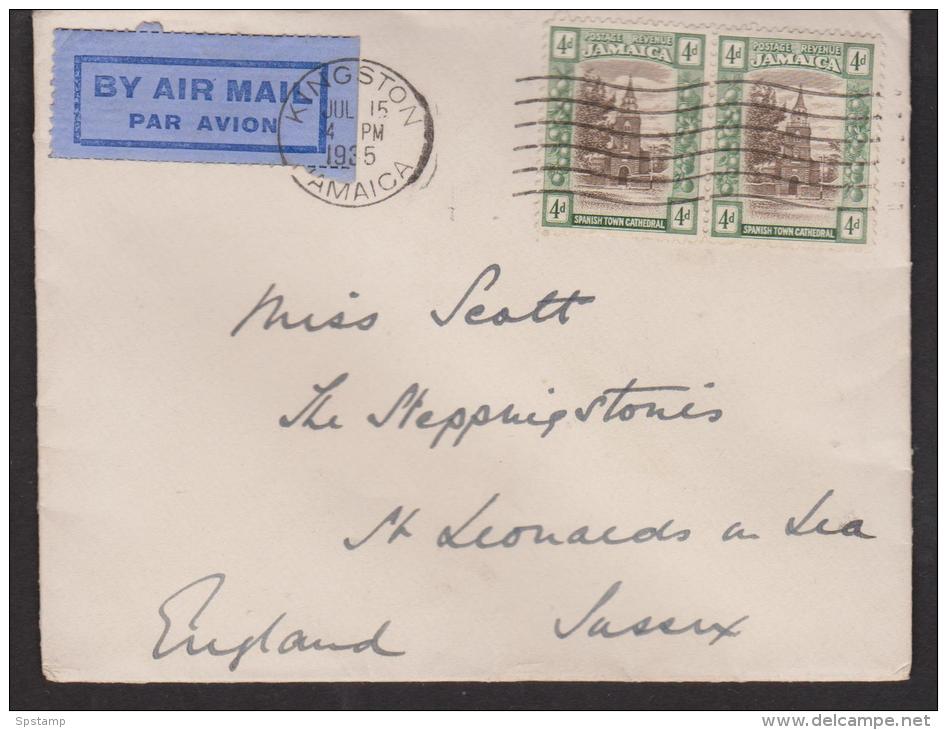 BY AIR MAIL
PAR AVION
KINGSTON
JUL 15
4 PM
1935
JAMAICA
4d POSTAGE REVENUE 4d
JAMAICA
4d SPANISH TOWN CATHEDRAL 4d
4d POSTAGE REVENUE 4d
JAMAICA
4d SPANISH TOWN CATHEDRAL 4d
Miss Scott
The Steppingstones
St Leonards on Sea
Sussex
England
Spstamp
www.delcampe.net